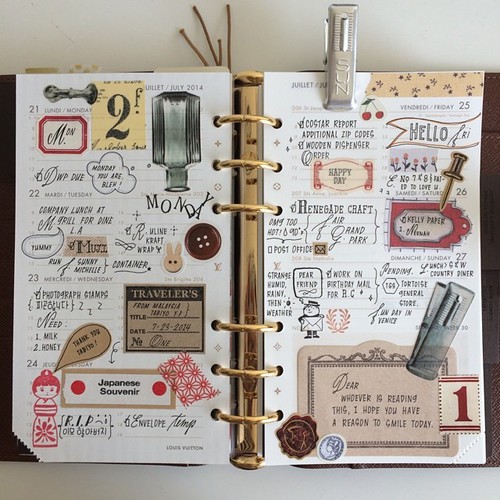 SUN
JUILLET / JULY 2014
21 LUNDI / MONDAY
2f
MON
DWP DUE
MONDAY
YOU ARE
BLEH!
MONDY
22
MARDI / TUESDAY
COMPANY LUNCH AT
M GRILL FOR DINE
L.A
YUMMY
MUTI
RUN
SUNNY
MICHELLE
CONTAINER
RULINE
KRAFT
WRAP
23
MERCREDI / WEDNESDAY
PHOTOGRAPH STAMPS
NEED:
1. MILK
2. HONEY
TRAVELER'S
FROM MALAYSIA
TITLE
DATE 7-23-2014
No ONE
24 JEUDI / THURSDAY
THANK YOU
TABIYO!
Japanese
Souvenir
R.I.P
할아버지
ENVELOPE temp
LOUIS VUITTON
JUILLET / JULY
VENDREDI / FRIDAY 25
COSTAR REPORT
ADDITIONAL ZIP CODES
WOODEN DISPENSER
ORDER
HELLO Fri
HAPPY
DAY
TO LOVE U.
SAMEDI / SATURDAY 26
RENEGADE CRAFT
FAIR
@ GRAND
PARK
OMG TOO
HOT! @ 90°
POST OFFICE
KELLY PAPER
DIMANCHE / SUNDAY 27
STRANGE
HUMID,
RAINY,
THEN
WEATHER
DEAR
FRIEND
WORK ON
BIRTHDAY MAIL
FOR B.C
PENDING.
LUNCH @
COUNTRY DINER
TGS
TORTOISE
GENERAL
STORE.
FUN DAY IN
VENICE
DEAR
WHOEVER IS READING
THIS, I HOPE YOU HAVE
A REASON TO SMILE TODAY.
1